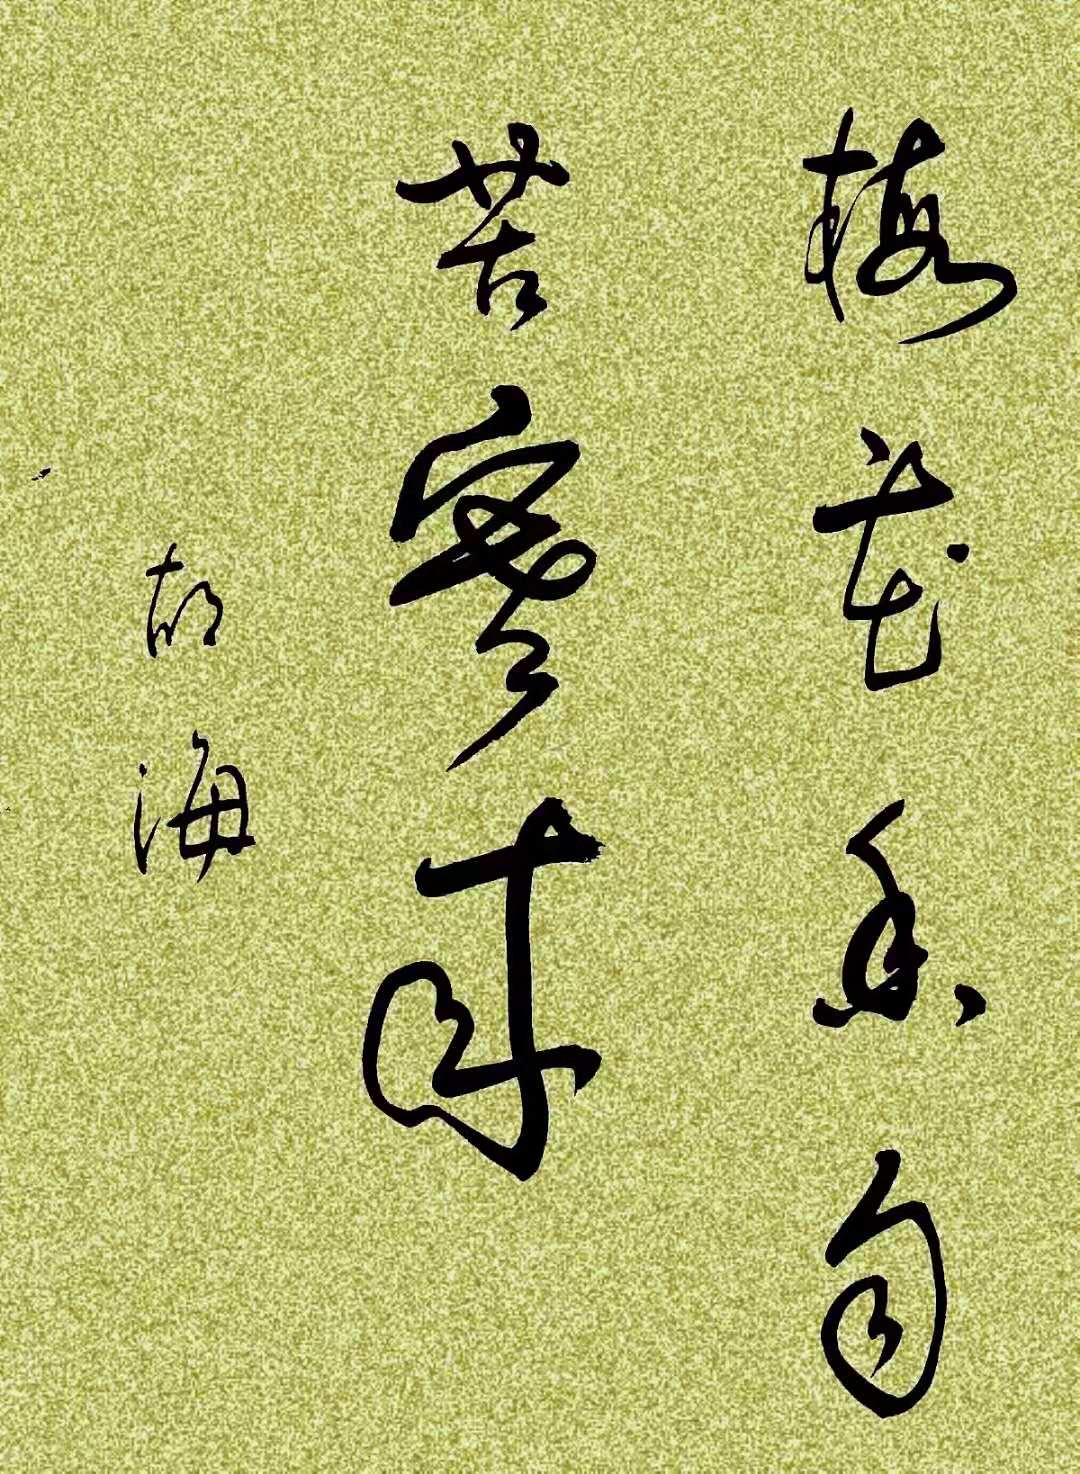 梅花香自
苦寒来
胡海